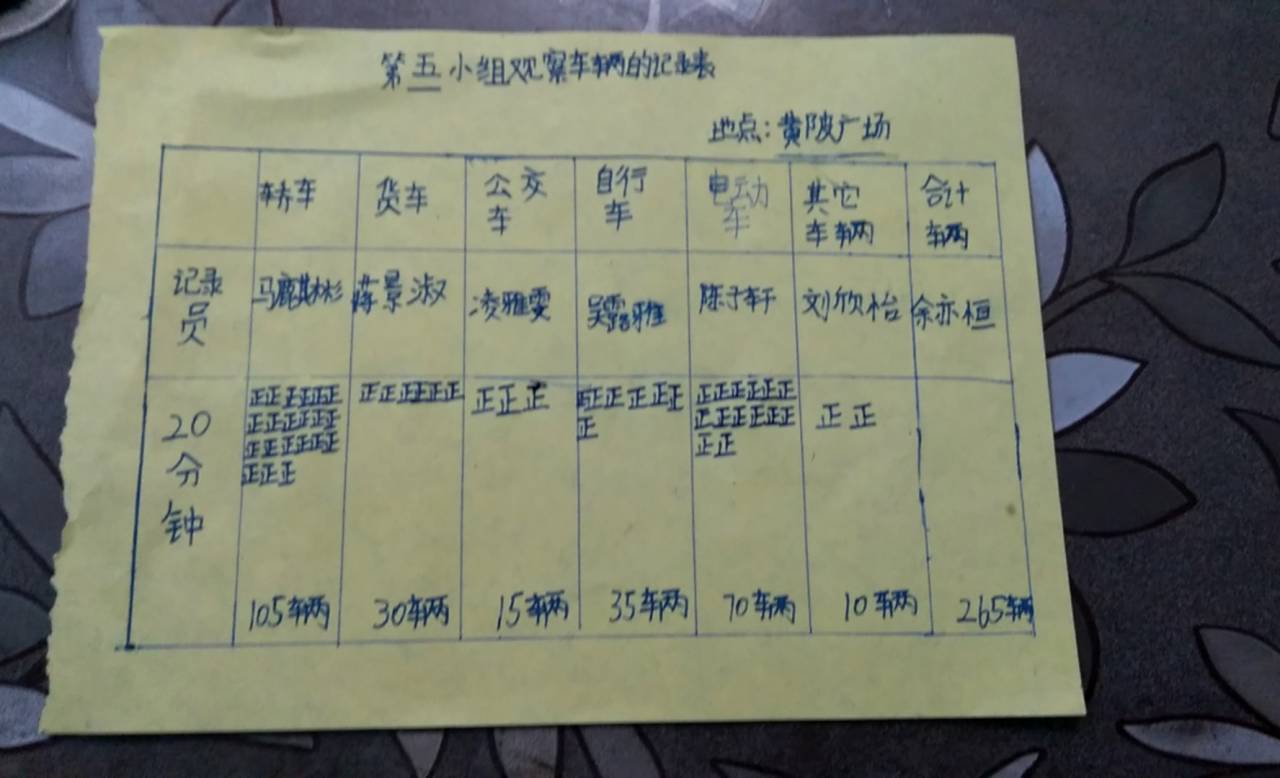 第五小组观察车辆的记录表
地点：黄陂广场
轿车 货车 公交车 自行车 电动车 其它车辆 合计车辆
记录员 马麒彬 蒋景淑 凌雅雯 吴露雅 陈子轩 刘欣怡 余亦桓
20分钟
正正正正正 正正正正正 正正正 正正正正正 正正正正正正 正正
正正正正正 正 正正正正正正
正正正正正 正正
正正正
105辆 30辆 15辆 35辆 70辆 10辆 265辆